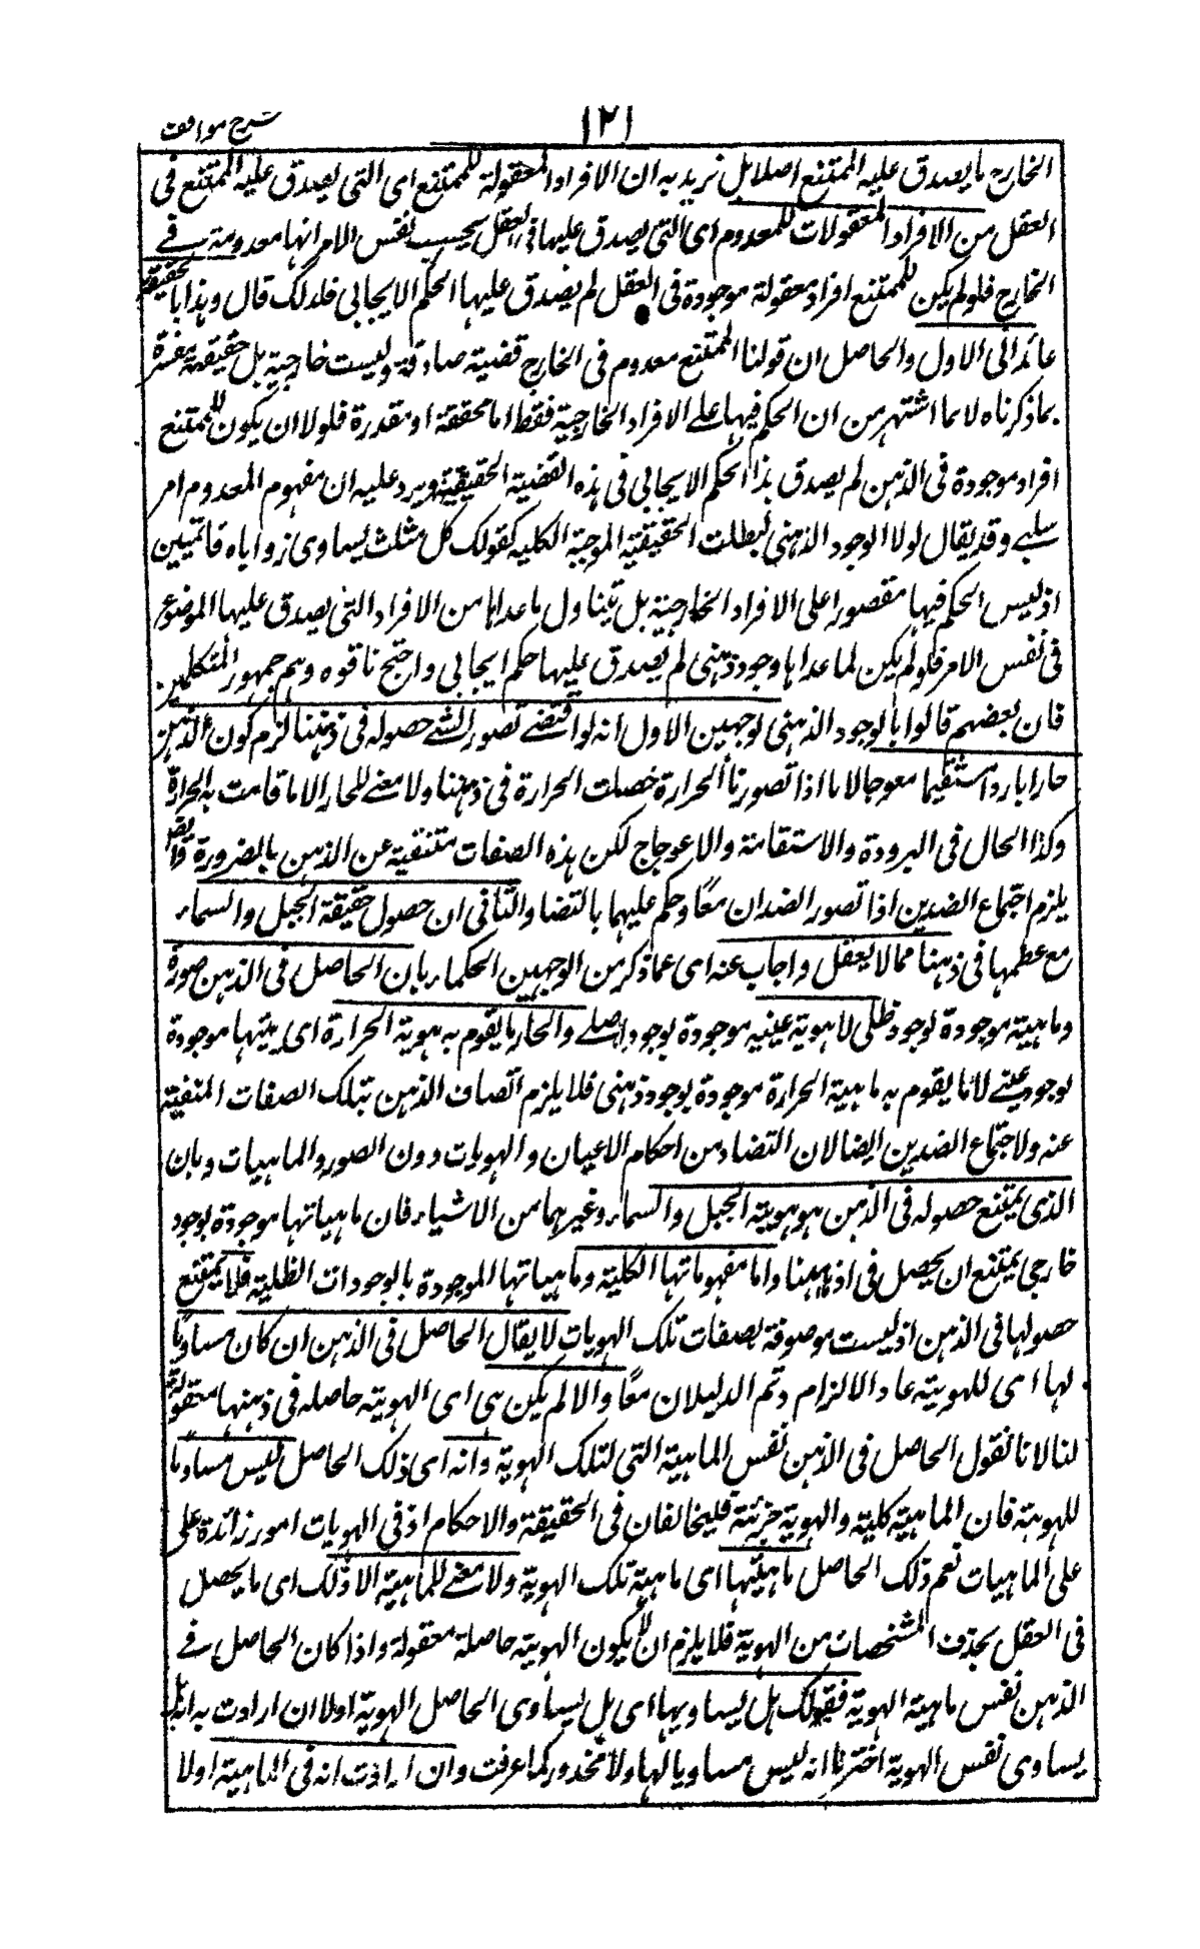 ١٢١
شرح مواقف
الخارج ما يصدق عليه الممتنع اصلا بل نريد به ان الافراد المعقولة للممتنع اى التى يصدق عليه الممتنع فى
العقل من الافراد المعقولات للمعدوم اى التى يصدق عليها فى العقل بحسب نفس الامر انها معدومة فے
الخارج فلو لم يكن للممتنع افراد معقولة موجودة فى العقل لم يصدق عليها الحكم الايجابى فلذلك قال وهذا بالحقيقة
عائد الى الاول والحاصل ان قولنا الممتنع معدوم فى الخارج قضية صادقة وليست خارجية بل حقيقية مفسرة
بما ذكرناه لا بما اشتهر من ان الحكم فيها على الافراد الخارجية فقط اما محققة او مقدرة فلولا ان يكون للممتنع
افراد موجودة فى الذهن لم يصدق هذا الحكم الايجابى فى هذه القضية الحقيقية ويرد عليه ان مفهوم المعدوم امر
سلبے وقد يقال لولا الوجود الذهنى لبطلت الحقيقية الموجبة الكلية كقولك كل مثلث يساوى زواياه قائمتين
اذ ليس الحكم فيها مقصورا على الافراد الخارجية بل تيناول ما عداها من الافراد التى يصدق عليها الموضوع
فى نفس الامر فلو لم يكن لما عداها وجود ذهنى لم يصدق عليها حكم ايجابى واحتج نافوه وهم جمهور المتكلمين
فان بعضهم قالوا بالوجود الذهنى لوجهين الاول انه لو اقتضے تصور الشے حصوله فى ذهننا لزم كون الذهن
حارا باردا مستقيما معوجا لانا اذا تصورنا الحرارة حصلت الحرارة فى ذهننا ولا معنے للحار الا ما قامت به الحرارة
وكذا الحال فى البرودة والاستقامة والاعوجاج لكن هذه الصفات منتفية عن الذهن بالضرورة وايضا
يلزم اجتماع الضدين اذا تصور الضدان معًا وحكم عليهما بالتضاد والثانى ان حصول حقيقة الجبل والسماء
مع عظمها فى ذهننا مما لا يعقل واجاب عنه اى عما ذكر من الوجهين الحكماء بان الحاصل فى الذهن صورة
وماهية موجودة بوجود ظلى لا هوية عينيه موجودة بوجود اصلے والحار ما يقوم به هوية الحرارة اى ماهيتها موجودة
بوجود عينے لا ما يقوم به ماهية الحرارة موجودة بوجود ذهنى فلا يلزم اتصاف الذهن بتلك الصفات المنفية
عنه ولا اجتماع الضدين ايضا لان التضاد من احكام الاعيان والهويات دون الصور والماهيات وبان
الذى يمتنع حصوله فى الذهن هو هوية الجبل والسماء وغيرهما من الاشياء فان ماهياتها موجودة بوجود
خارجى يمتنع ان يحصل فى اذهاننا واما مفهوماتها الكلية وماهياتها الموجودة بالوجودات الظلية فلا يمتنع
حصولها فى الذهن اذ ليست موصوفة بصفات تلك الهويات لا يقال الحاصل فى الذهن ان كان مساويًا
لها اى للهوية عاد الالزام وتم الدليلان معًا والا لم يكن هى اى الهوية حاصله فى ذهنها معقولة
لنا لانا نقول الحاصل فى الذهن نفس الماهية التى لتلك الهوية وانه اى ذلك الحاصل ليس مساويا
للهوية فان الماهية كلية والهوية جزئية فليخالفان فى الحقيقة والاحكام اذ فى الهويات امور زائدة على
على الماهيات نعم ذلك الحاصل ماهيتها اى ماهية تلك الهوية ولا معنے للماهية الا ذلك اى ما يحصل
فى العقل بحذف المشخصات من الهوية فلا يلزم ان لا يكون الهوية حاصلة معقولة واذا كان الحاصل فے
الذهن نفس ماهية الهوية فقولك هل يساويها اى هل يساوى الحاصل الهوية اولا ان اردت به انه هل
يساوى نفس الهوية اخترنا انه ليس مساويا لها ولا محذور كما عرفت وان اردت انه فى الماهية اولا